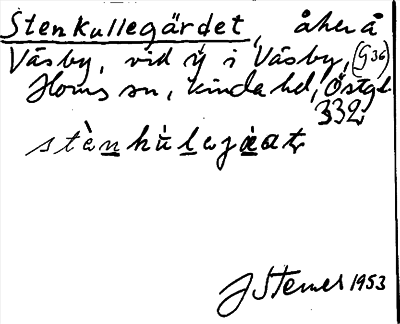 Stenkullegärdet, åker å
Väsby, vid ÿ i Väsby, (G36)
Horns sn, Kinda hd, Östgl.
332
stènkùlejæ̀at,
J Sterner 1953